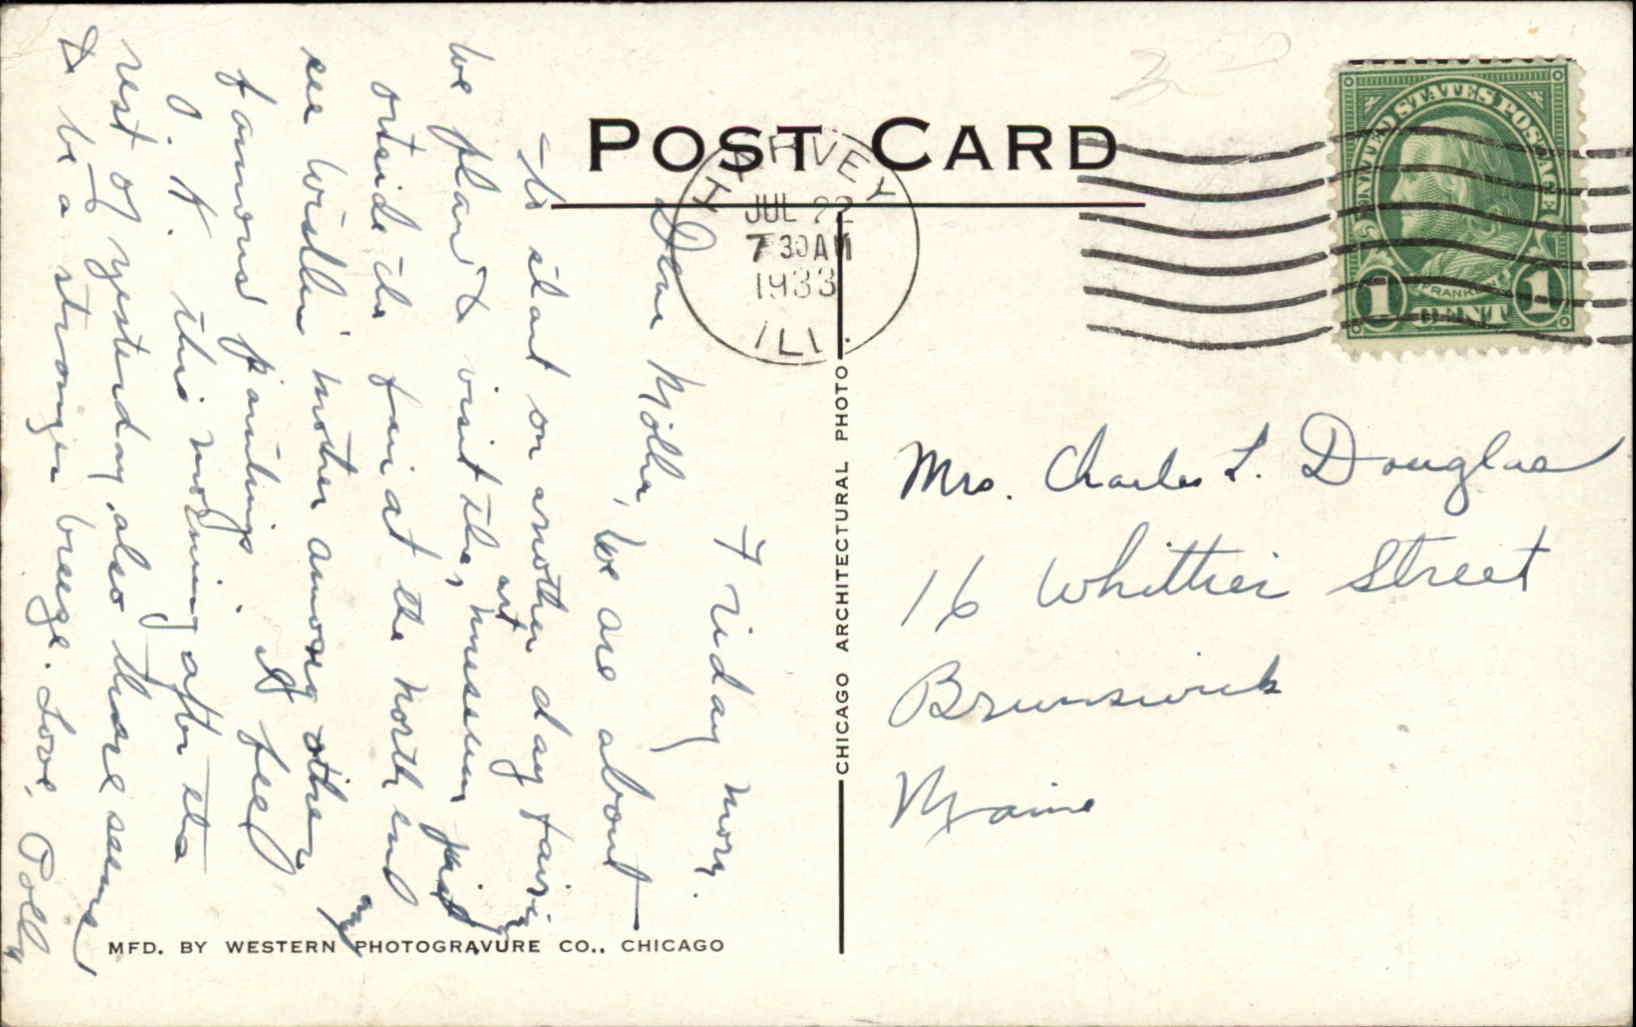 POST CARD
HARVEY
JUL 22
7 30 AM
1933
ILL.
UNITED STATES POSTAGE
FRANKLIN
1 CENT 1
Friday morn.
Dear Mother, We are about
to start on another day fairing
We plan to visit the art museum just
outside the fair at the north end
see Wistler's mother among other
famous paintings. I feel
O.K. this morning after the
rest of yesterday, also there seems
to be a stronger breeze. Love, Polly
Mrs. Charles L. Douglas
16 Whittier Street
Brunswick
Maine
CHICAGO ARCHITECTURAL PHOTO
MFD. BY WESTERN PHOTOGRAVURE CO., CHICAGO